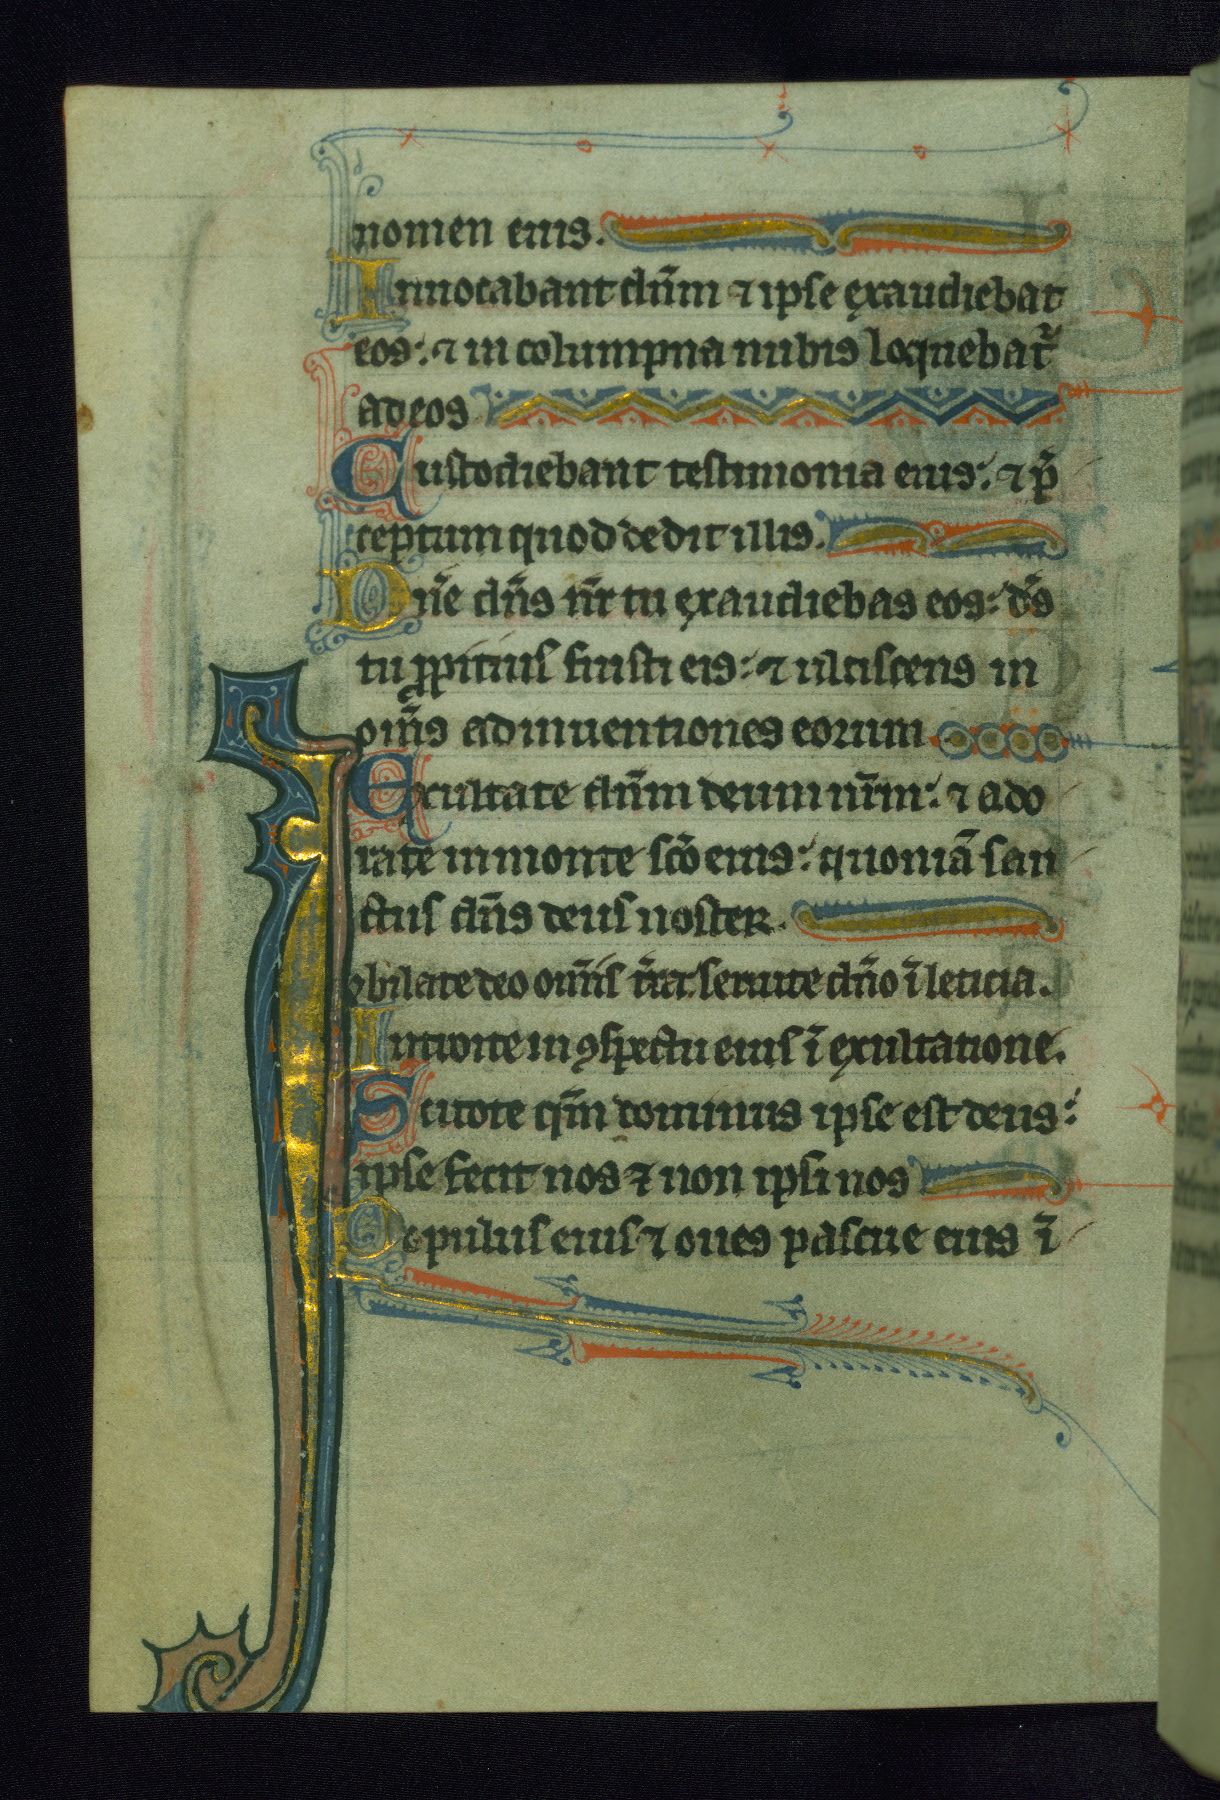 nomen eius.
Inuocabant dn̄m ⁊ ipse exaudiebat
eos: ⁊ in columpna nubis loquebat᷑
ad eos
Custodiebant testimonia eius: ⁊ p̄
ceptum quod dedit illis.
Dn̄e dn̄s nr̄ tu exaudiebas eos: ds̄
tu ꝓpitius fuisti eis: ⁊ ulciscens in
om̄s adinuentiones eorum
Exultate dn̄m deum nr̄m: ⁊ ado
rate in monte sc̄o eius: quoniā san
ctus dn̄s deus noster.
Jobilate deo om̄is tr̄a: seruite dn̄o ī leticia.
Introite in ꝯspectu eius ī exultatione.
Scitote qm̄ dominus ipse est deus:
ipse fecit nos ⁊ non ipsi nos
Populus eius ⁊ oues pascue eius ī